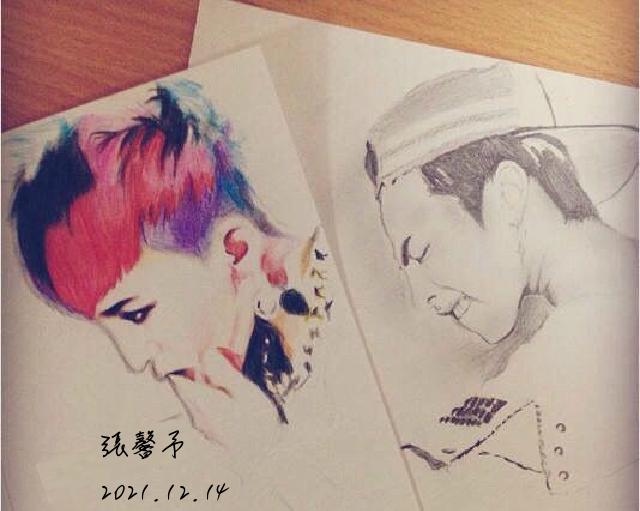 張馨予
2021.12.14